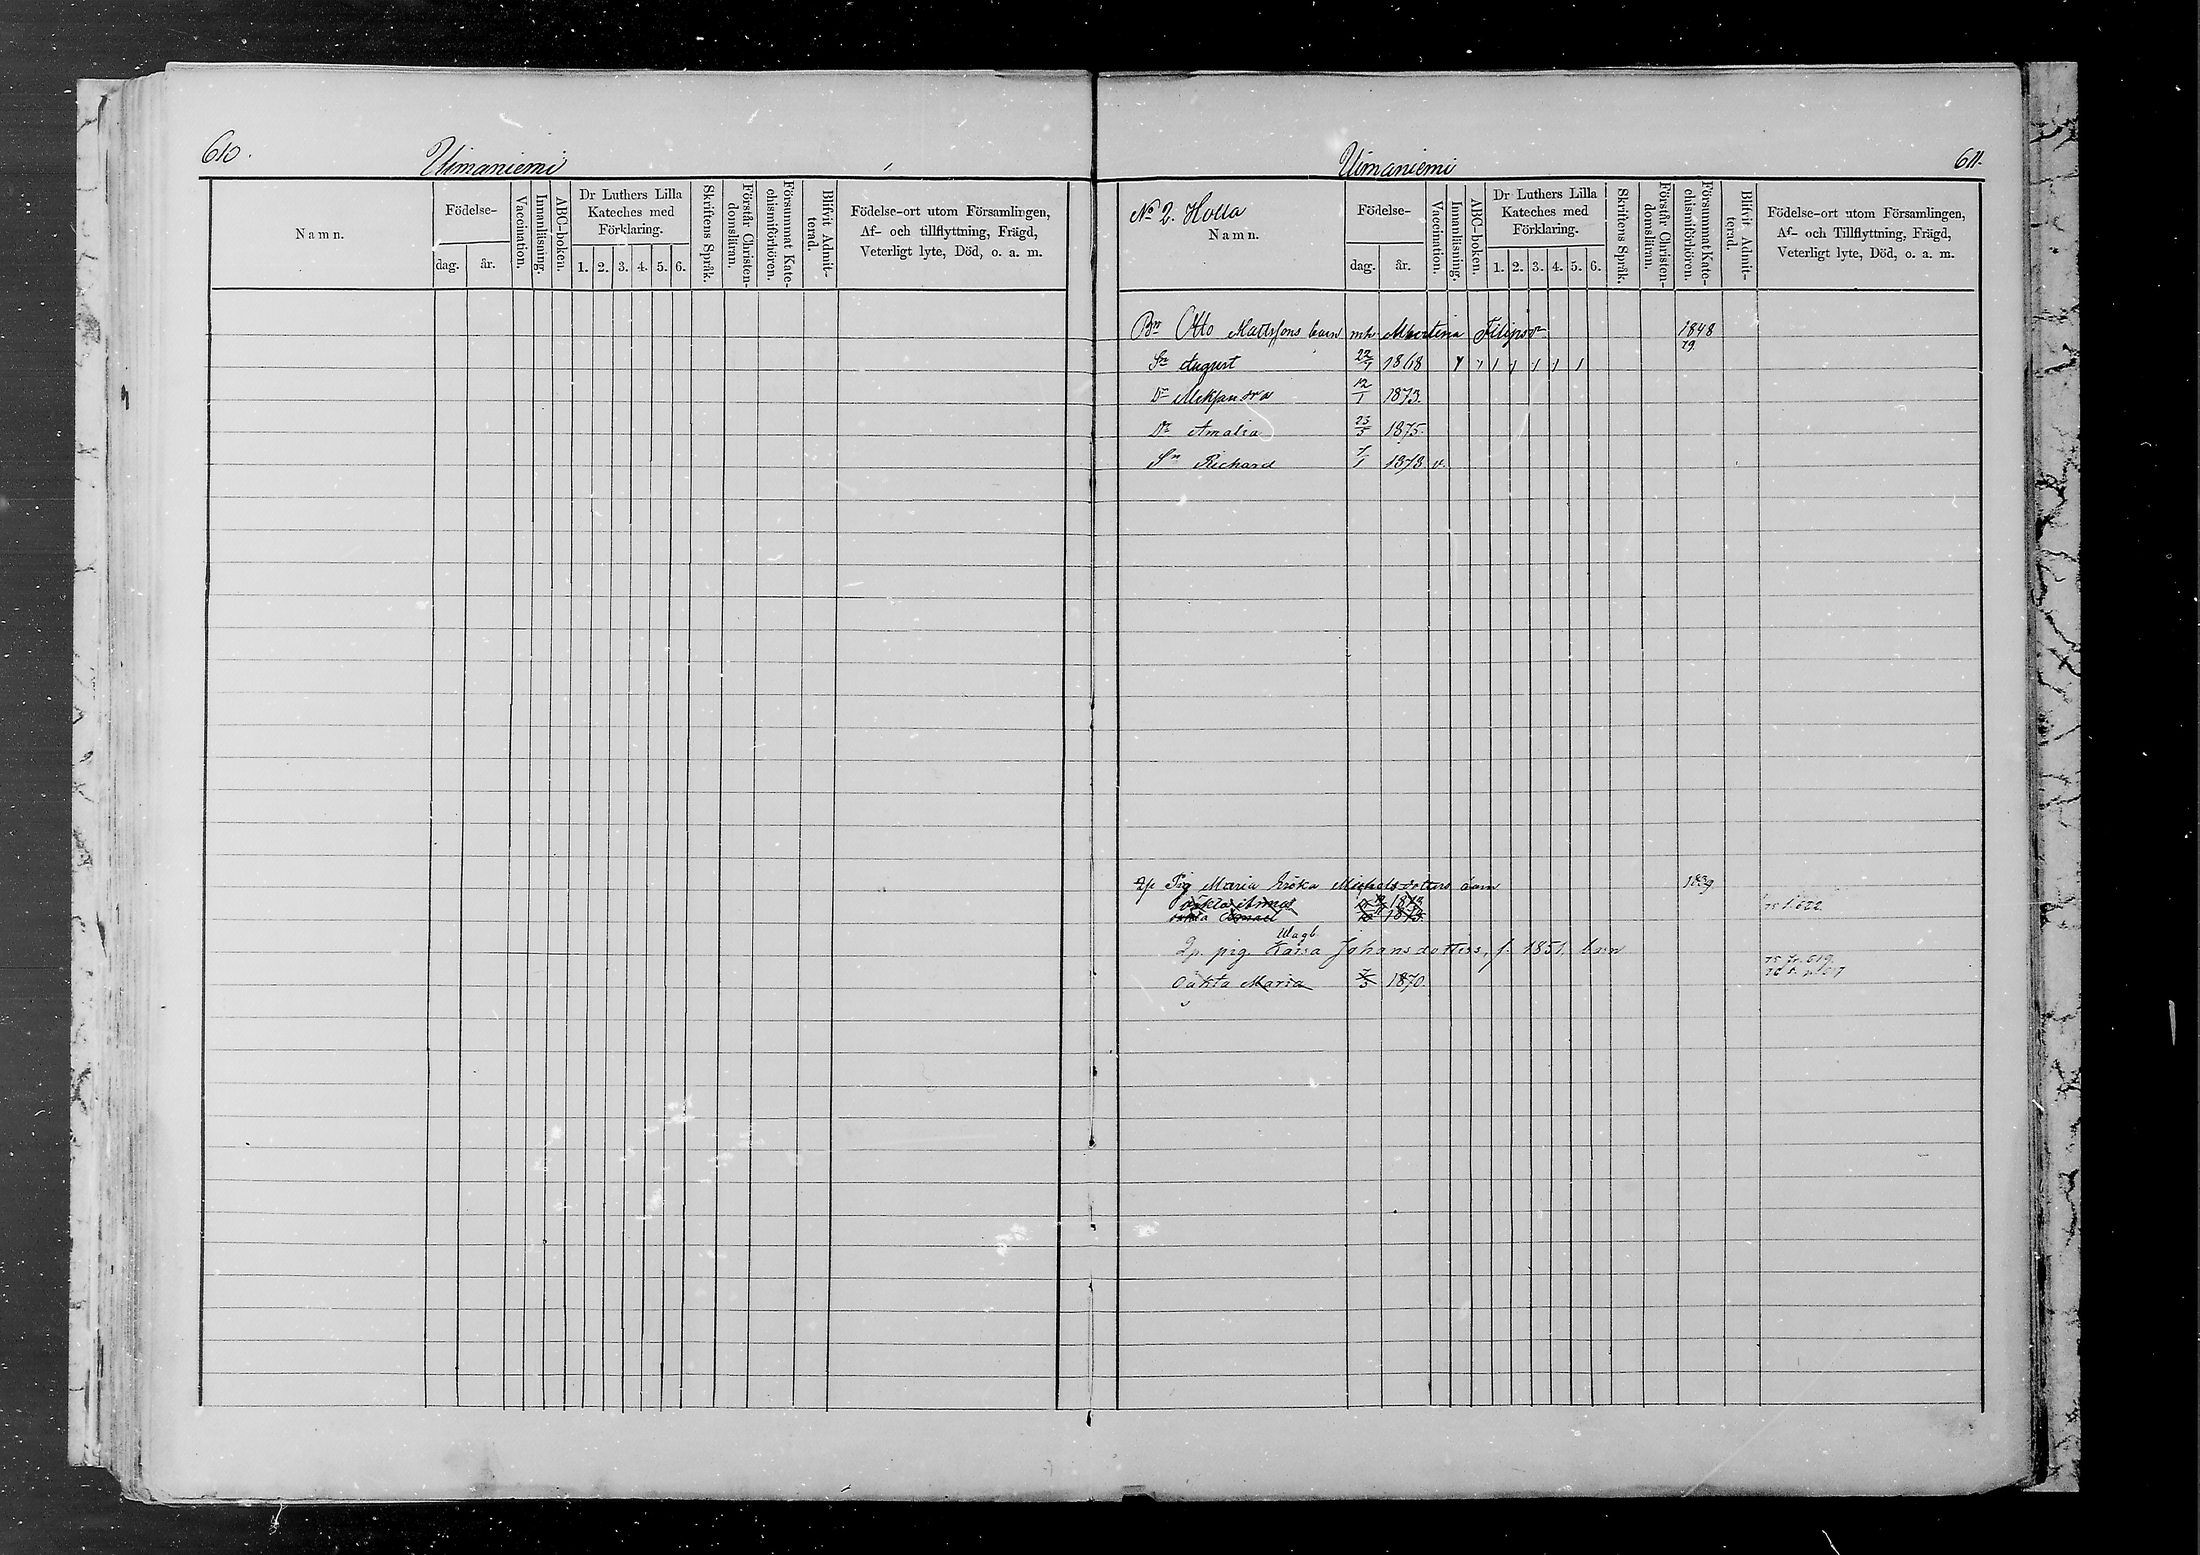 610.
Uimaniemi
Namn.
Födelse-
dag.
år.
Vaccination.
Innanläsning.
ABC-boken.
Dr Luthers Lilla
Kateches med
Förklaring.
1. 2. 3. 4. 5. 6.
Skriftens Språk.
Förstår Christen-
domsläran.
Försummat Kate-
chismiförhören.
Blifvit Admit-
terad.
Födelse-ort utom Församlingen,
Af- och tillflyttning, Frägd,
Veterligt lyte, Död, o. a. m.
Uimaniemi
611.
No 2. Holla
Namn.
Födelse-
dag.
år.
Vaccination.
Innanläsning.
ABC-boken.
Dr Luthers Lilla
Kateches med
Förklaring.
1. 2. 3. 4. 5. 6.
Skriftens Språk.
Förstår Christen-
domsläran.
Försummat Kate-
chismiförhören.
Blifvit Admit-
terad.
Födelse-ort utom Församlingen,
Af- och Tillflyttning, Frägd,
Veterligt lyte, Död, o. a. m.
Bn Otto Mattssons barn Filipsdr 1848
79
Sn August 1868
Dr Aleksandra 12/1 1873.
Dr Amalia 23/5 1875.
Sn Richard 7/1 1873 v.
Pig Maria Michelsdotters barn 1839
oäkta 1873
oäkta 1873
pig. Kaisa Johansdotters, f. 1851, barn
oäkta Maria 1870